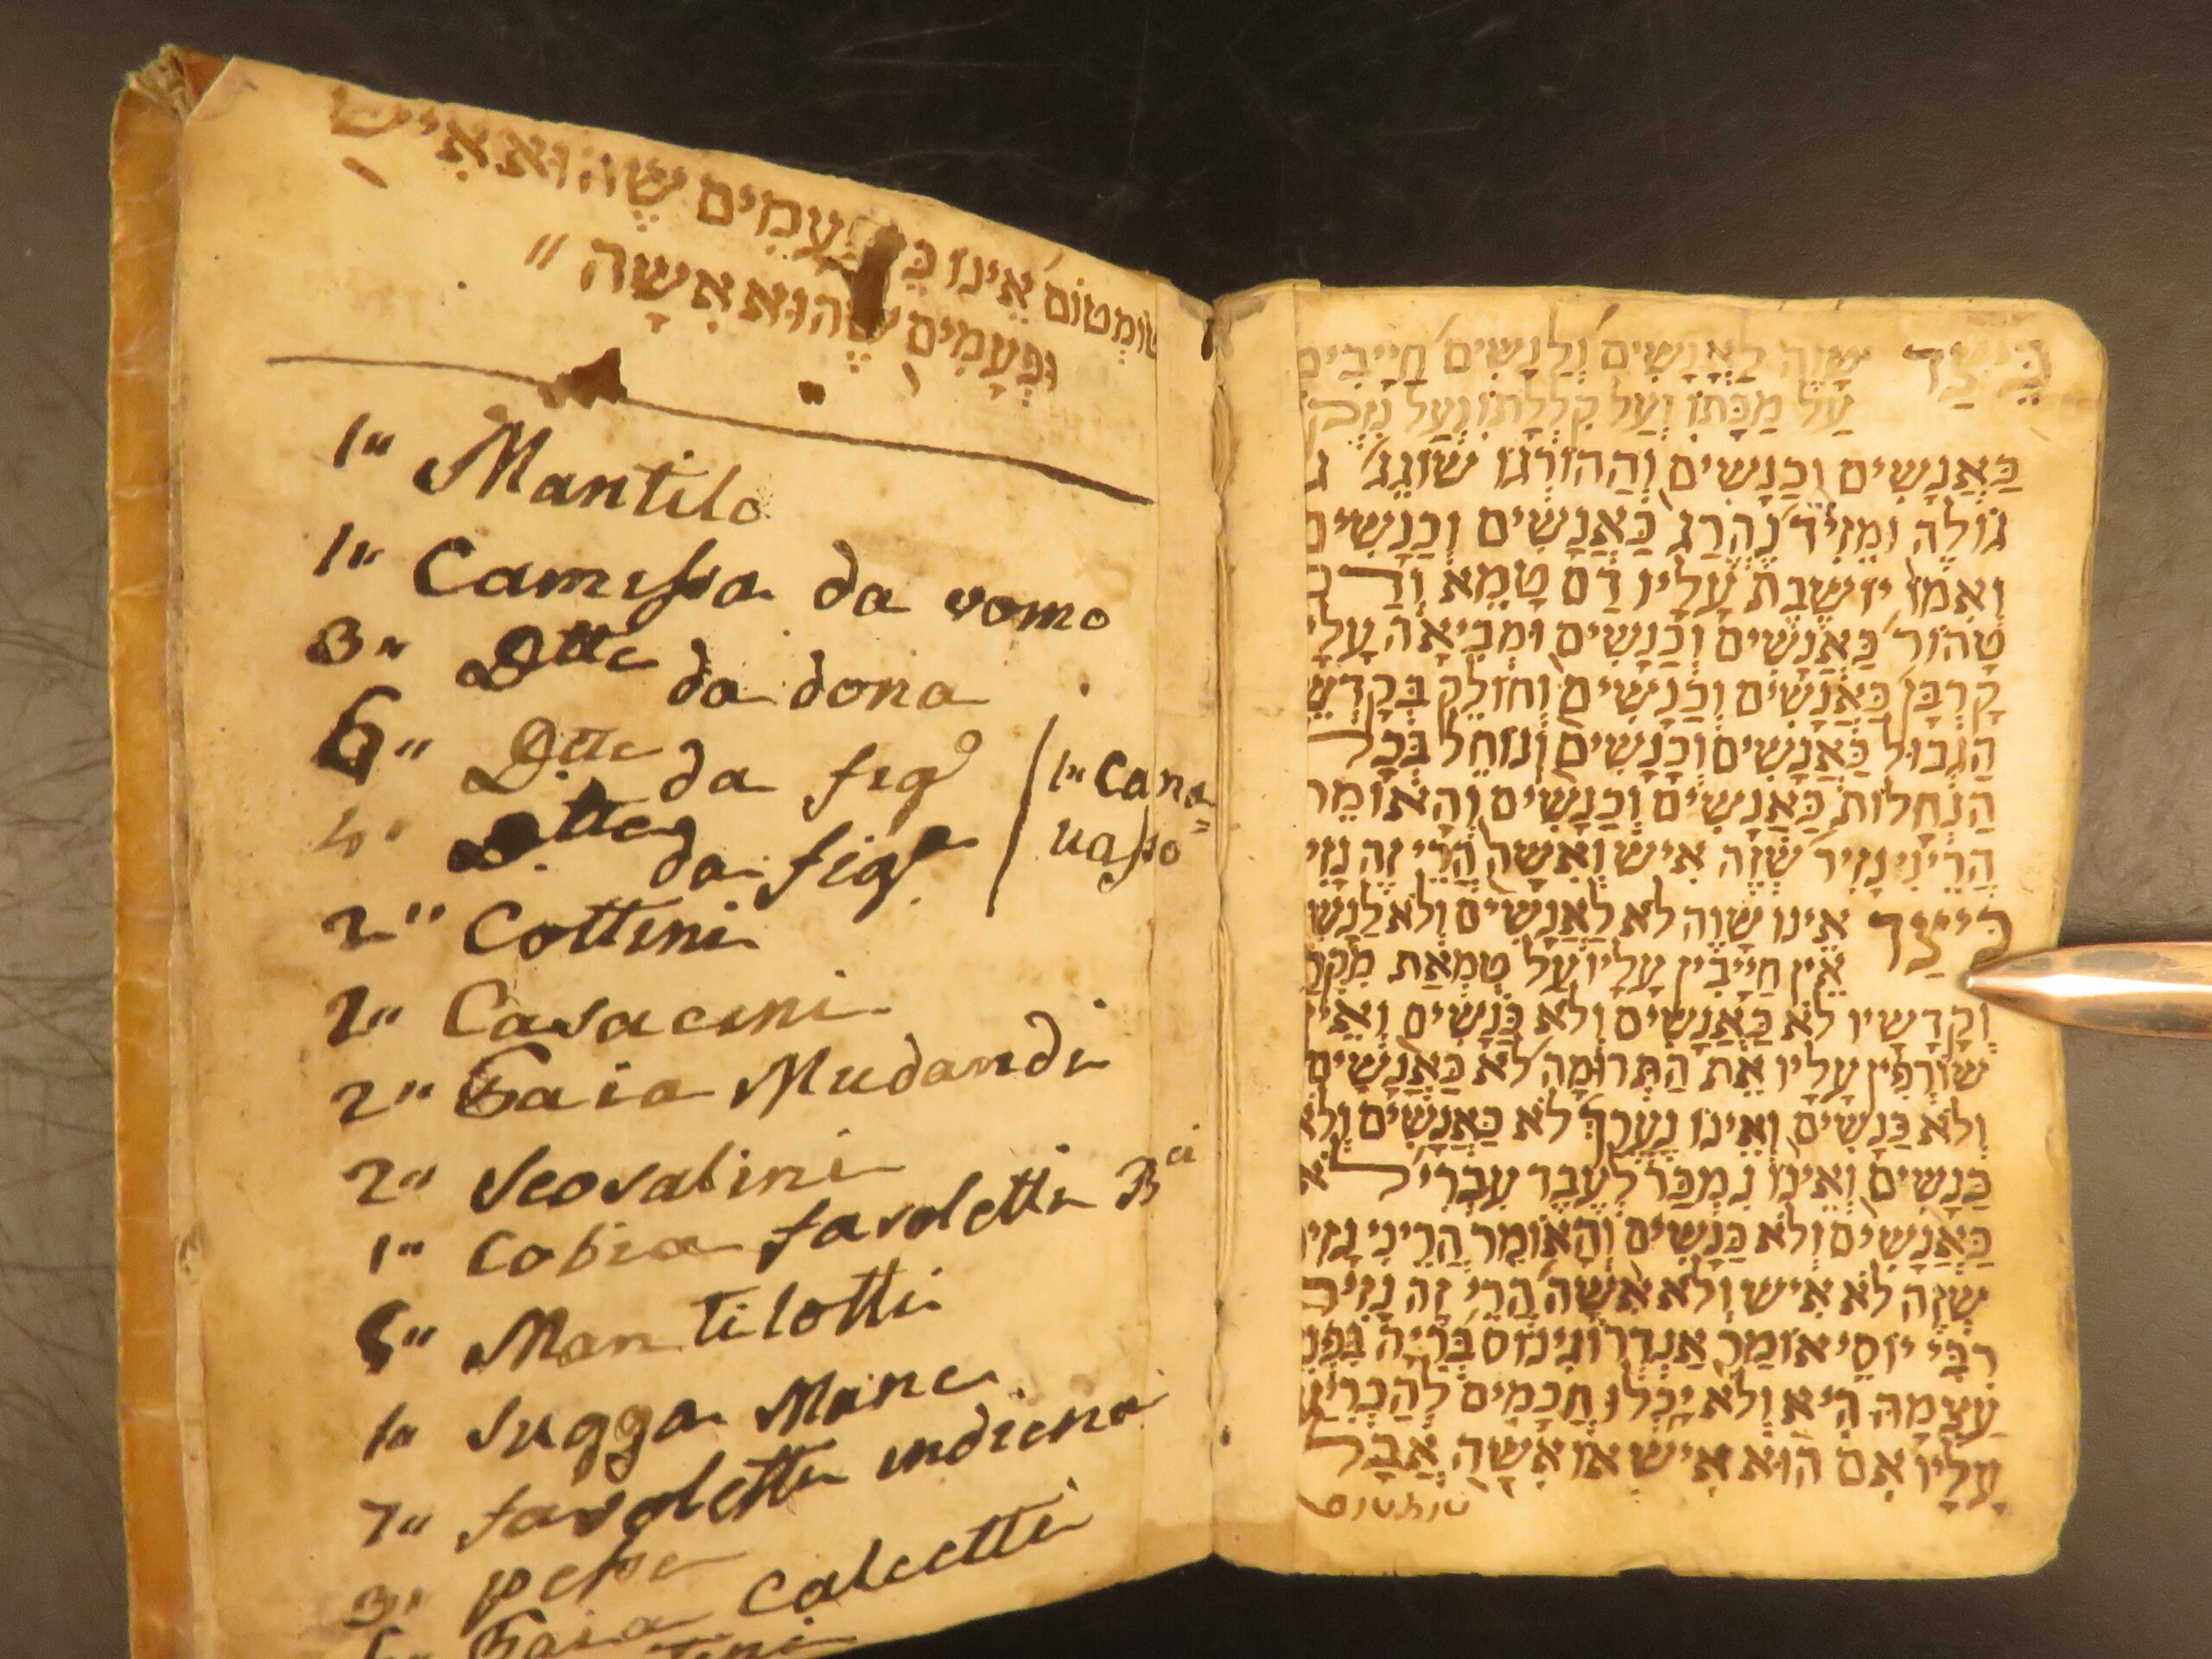 כֵּיצַד שָׁוֶה לַאֲנָשִׁים וְלַנָשִׁים חַיָיבִים
עַל מַכָּתוֹ וְעַל קִלְלָתוֹ וְעַל נִזְקוֹ
כַּאֲנָשִׁים וְכַנָשִׁים וְהַהוֹרְגוֹ שׁוֹגֵג
גוֹלֶה וּמֵזִיד נֶהֱרַג כַּאֲנָשִׁים וְכַנָשִׁים
וְאִמוֹ יוֹשֶׁבֶת עָלָיו דַם טָמֵא וְדַם
טָהוֹר כַּאֲנָשִׁים וְכַנָשִׁים וּמְבִיאָה עָלָיו
קָרְבָּן כַּאֲנָשִׁים וְכַנָשִׁים וְחוֹלֵק בְּקָדְשֵׁי
הַגְבוּל כַּאֲנָשִׁים וְכַנָשִׁים וְנוֹחֵל בְּכָל
הַנְחָלוֹת כַּאֲנָשִׁים וְכַנָשִׁים וְהָאוֹמֵר
הֲרֵינִי נָזִיר שֶׁזֶה אִישׁ וְאִשָׁה הֲרֵי זֶה נָזִיר
כֵּיצַד אֵינוֹ שָׁוֶה לֹא לַאֲנָשִׁים וְלֹא לַנָשִׁים
אֵין חַיָיבִין עָלָיו עַל טֻמְאַת מִקְדָשׁ
וְקָדָשָׁיו לֹא כַּאֲנָשִׁים וְלֹא כַּנָשִׁים וְאֵין
שׂוֹרְפִין עָלָיו אֶת הַתְרוּמָה לֹא כַּאֲנָשִׁים
וְלֹא כַּנָשִׁים וְאֵינוֹ נֶעֱרָךְ לֹא כַּאֲנָשִׁים וְלֹא
כַּנָשִׁים וְאֵינוֹ נִמְכַּר לְעֶבֶד עִבְרִי לֹא
כַּאֲנָשִׁים וְלֹא כַּנָשִׁים וְהָאוֹמֵר הֲרֵינִי נָזִיר
שֶׁזֶה לֹא אִישׁ וְלֹא אִשָׁה הֲרֵי זֶה נָזִיר
רַבִּי יוֹסֵי אוֹמֵר אַנְדְרוֹגִינוֹס בְּרִיָה בִּפְנֵי
עַצְמָהּ הִיא וְלֹא יָכְלוּ חֲכָמִים לְהַכְרִיעַ
עָלָיו אִם הוּא אִישׁ אוֹ אִשָׁה אֲבָל
טומטום
טוּמְטוֹם אֵינוֹ כֵּן פְעָמִים שֶׁהוּא אִישׁ
וּפְעָמִים שֶׁהוּא אִשָׁה "
1" Mantilo
1" Camissa da vomo
3" Dtte da dona
6" Dtte da figo
4" Dtte da figa
1" Cana=
uasso
2" Cottini
2" Casacini
2" Baia Mudandi
2" Scosalini
1" Cobia favoletti Bci
5" Mantilotti
1" Sugga Mane
7" favoletti indiena
3" pesse
Baia Calcetti